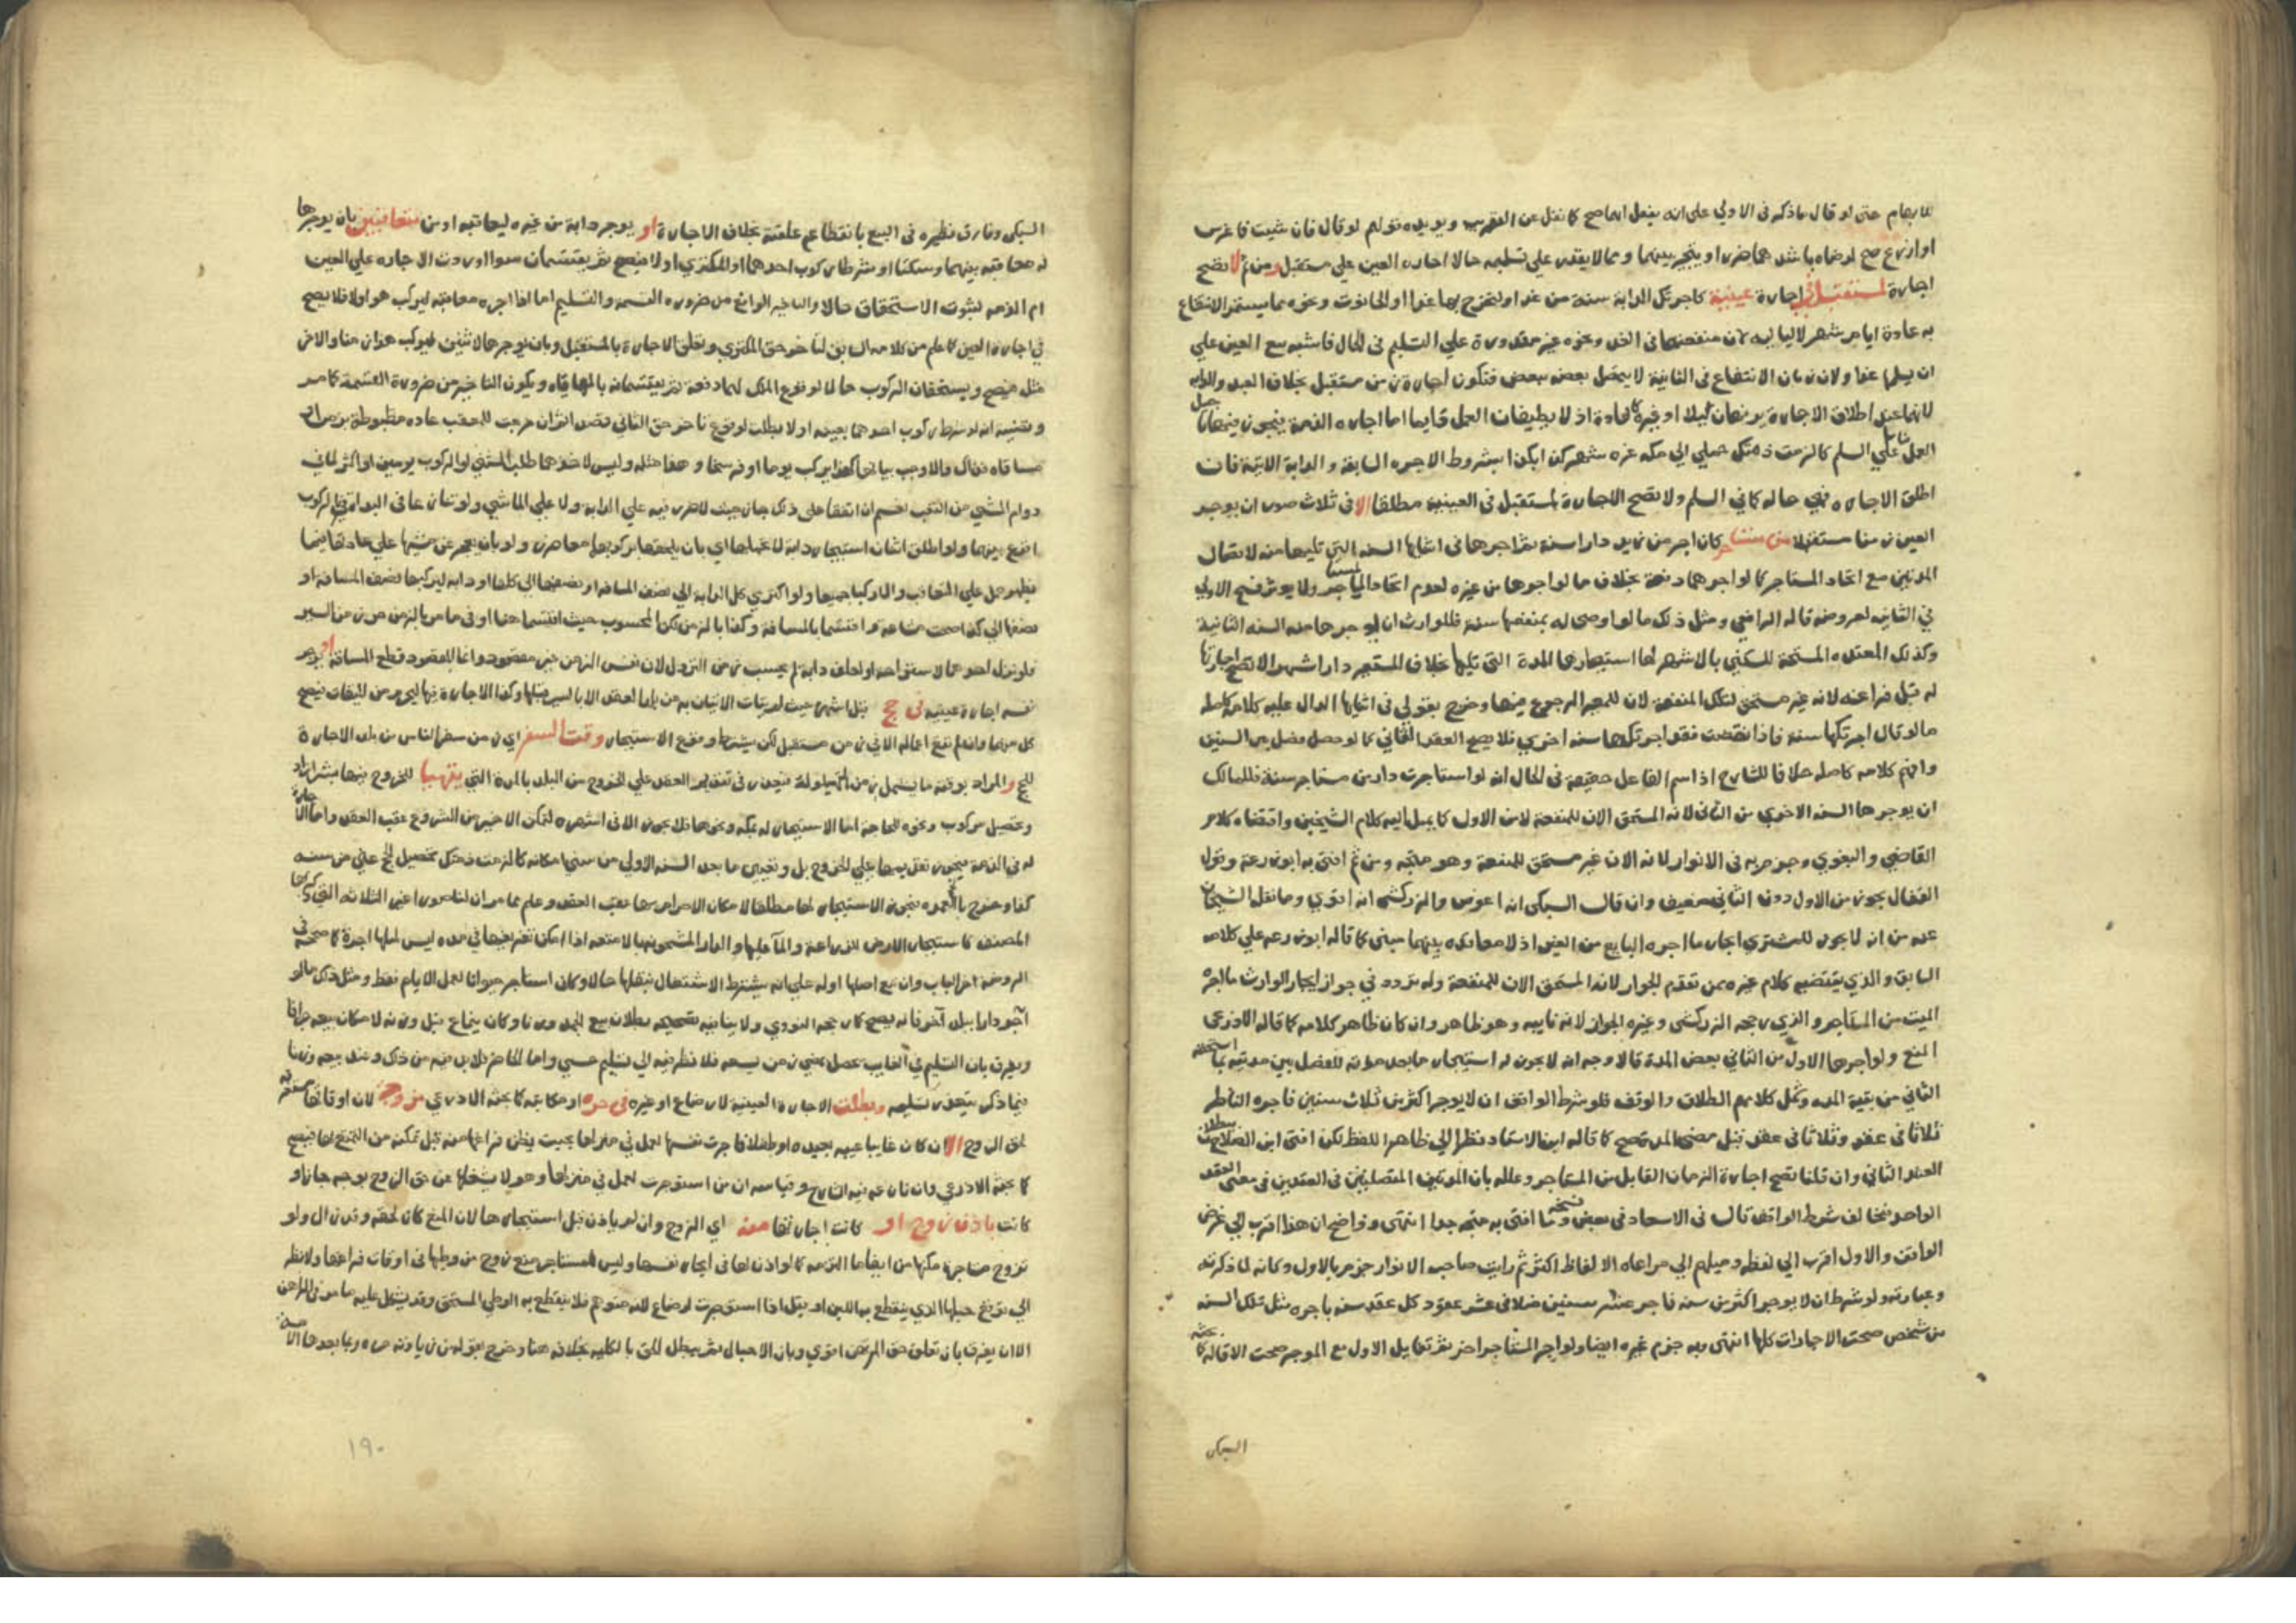 للابهام حتى لو قال ماذكر في الاولي علي انه يفعل ايهما صح كما نقل عن التقريب ويويده قولهم لو قال فان شيت فاغرس
او ازرع صح لرضاه باشدهما ضررا ويتخير بينهما ومما لا يقدر علي تسليمه حالا اجارة العين علي مستقبل ومن ثم لا تصح
اجارة لمستقبل في اجارة عينية كاجرتك الدابة سنة من غد او لتخرج بها غدا او الحانوت ونحوه مما يستمر الانتفاع
به عادة ايام شهر لا لياليه لان منفعتهما في الغد ونحوه غير مقدورة علي التسليم في الحال فاشبه بيع العين علي
ان يسلمها غدا ولان زمان الانتفاع في الثانية لا يتصل بعضه ببعض فتكون اجارة زمن مستقبل بخلاف العبد والدابة
لانهما عند اطلاق الاجارة يرفهان ليلا او غيره كالعادة اذ لا يطيقان العمل دايما اما اجارة الذمة فيجوز فيها تاجيل
العمل علي السلم كالزمت ذمتك حملي الي مكه غرة شهر كذا بكذا بشروط الاجرة السابقة والدابة الاتية فان
اطلق الاجاره فهي حاله كما في السلم ولا تصح الاجارة لمستقبل في العينية مطلقا الا في ثلاث صور ان يوجر
العين زمنا مستقبلا من مستاجر كان اجر من زيد دارا سنة ثم اجرها في اثنايها السنه التي تليها منه لاتصال
المدتين مع اتحاد المستاجر كما لو اجرهما دفعة بخلاف ما لو اجرها من غيره لعدم اتحاد المستاجر ولا يوثر فسخ الاولي
في الثانيه لعروضه قاله الرافعي ومثل ذلك ما لو اوصي له بمنفعتها سنة فللوارث ان يوجرها منه السنه الثانية
وكذلك المعتده المستحقة للسكني بالاشهر لها استيجارها المدة التي تليها خلاف المستعير دارا شهرا لا تصح اجارتها
له قبل فراغه لانه غير مستحق لتلك المنفعة لان للمعير الرجوع فيها وخرج بقولي في اثنايها الدال عليه كلامه كاصله
ما لو قال اجرتكها سنة فاذا انقضت فقد اجرتكها سنه اخري فلا يصح العقد الثاني كما لو حصل فصل بين السنين
وافهم كلامه كاصله خلافا للشارح اذ اسم الفاعل حقيقة في الحال انه لو استاجرت دار من مستاجر سنة فللمالك
ان يوجرها السنه الاخري من الثاني لانه المستحق الان للمنفعة لا من الاول كما يميل اليه كلام الشيخين واقتضاه كلام
القاضي والبغوي وجزم به في الانوار لانه الان غير مستحق للمنفعة وهو متجه ومن ثم افتي به ابو زرعة وقول
القفال يجوز من الاول دون الثاني ضعيف وان قال السبكي انه اغوص والزركشي انه اقوي وما نقله الشيخان
عنه من انه لا يجوز للمشتري ايجار ما اجره البايع من الغير اذ لا معاقده بينهما مبني كما قاله ابو زرعه علي كلامه
السابق والذي يقتضيه كلام غيره ممن تقدم الجواز لانه المستحق الان للمنفعة وله تردد في جواز ايجار الوارث ما اجره
الميت من المستاجر والذي رجحه الزركشي وغيره الجواز لانه نايبه وهو ظاهر وان كان ظاهر كلامه كما قاله الاذرعي
المنع ولو اجرها الاول من الثاني بعض المدة فالاوجه انه لا يجوز له استيجار ما بعد مدته للفصل بين مدتيه بما استحقه
الثاني من بقية المده وشمل كلامهم الطلق والوقف فلو شرط الواقف ان لا يوجر اكثر من ثلاث سنين فاجره الناظر
ثلاثا في عقد وثلاثا في عقد قبل مضي المدة صح كما قاله ابن الاستاد نظرا الي ظاهر اللفظ لكن افتي ابن الصلاح ببطلان
العقد الثاني وان قلنا تصح اجارة الزمان القابل من المستاجر وعلله بان المدتين المتصلتين في العقدين في معني العقد
الواحد فيخالف شرط الواقف قال في الاسعاد في بعض نسخه وما افتي به متجه جدا انتهي وواضح ان هذا اقرب الي غرض
الواقف والاول اقرب الي لفظه وميلهم الي مراعاه الالفاظ اكثر ثم رايت صاحب الانوار جزم بالاول وكانه لما ذكرته
وعبارته ولو شرط ان لا يوجر اكثر من سنه فاجر عشر سنين مثلا في عشر عقود كل عقد سنه باجره مثل تلك السنه
من شخص صحت الاجارات كلها انتهي وبه جزم غيره ايضا ولو اجر المستاجر اخر ثم تقايل الاول مع الموجر صحت الاقاله كما بحثه
السبكي
السبكي وفارق نظيره في البيع بانقطاع علقته بخلاف الاجارة او يوجر دابة من غيره ليعاقبه او من متعاقبين بان يوجرها
له معاقبه بينهما وسكتا او شرطا ركوب احدهما او المكتري اولا فيصح ثم يقتسمان سوا اوردت الاجاره علي العين
ام الذمه لثبوت الاستحقاق حالا والتاخير الواقع من ضروره القسمه والتسليم اما اذا اجره معاقبه ليركب هو اولا فلا يصح
في اجارة العين كما علم من كلامه السابق لتاخر حق المكتري وتعلق الاجارة بالمستقبل وبان يوجرها لاثنين ليركب هذا زمنا والاخر
مثله فيصح ويستحقان الركوب حالا لوقوع الملك لهما دفعة ثم يقتسمانه بالمهاياه ويكون التاخير من ضرورة القسمة كما مر
وقضيته انه لو شرط ركوب احدهما بعينه اولا بطلت لوقوع تاخر حق الثاني قصدا ثم ان جرت للعقب عاده مظبوطة بزمن او
مسافه فذاك والا وجب بيانها كهذا يركب يوما او فرسخا وهذا مثله وليس لاحدهما طلب المشي او الركوب يومين او اكثر لما في
دوام المشي من التعب نعم ان اتفقا علي ذلك جاز حيث لا ضرر فيه علي الدابة ولا علي الماشي ولو تنازعا في البداءة في الركوب
اقرع بينهما ولو اطلق اثنان استيجار دابة لا تحملهما اي بان يلحقها بركوبهما معا ضرر ولو بان يعجز عن مشيها علي عادتها فيما
يظهر حمل علي التعاقب والا ركباها جميعا ولو اكتري كل الدابة الي نصف المسافه او نصفها الي كلها او دابه ليركبها نصف المسافه او
نصفها الي كذا صحت مشاعة واقتسما بالمسافة وكذا بالزمن لكن المحسوب حيث اقتسما هنا او في ما مر بالزمن زمن السير
فلو نزل احدهما لاستراحه او لعلف دابه لم يحسب زمن النزول لان نفس الزمن غير مقصود وانما المقصود قطع المسافة او يوجر
نفسه اجارة عينيه في حج قبل اشهره حيث لم يتات الاتيان به من بلد العقد الا بالسير قبلها وكذا الاجارة فيها ليحرم من الميقات فيصح
كل منهما وان لم تقع اعماله الا في زمن مستقبل لكن بشرط وقوع الاستيجار وقت السفر اي زمن سفر الناس من بلد الاجارة
للحج والمراد بوقته ما يشمل زمن الحيلولة فيجوز في تقديم العقد علي الخروج من البلد بالمدة التي يتهيا للخروج فيها بشرا زاد
وتحصيل مركوب ونحوه للحاجة اما الاستيجار له بمكه ونحوها فلا يجوز الا في اشهره لتمكن الاجير من الشروع عقب العقد واما الاجارة
له في الذمه فيجوز تقديمها علي الخروج بل وتعيين ما بعد السنه الاولي من سني امكانه كالزمت ذمتك تحصيل الحج عني من سنه
كذا وخرج بالحج العمره فيجوز الاستيجار لها مطلقا لامكان الاحرام بها عقب العقد وعلم مما مر ان لنا صورا غير الثلاثه التي ذكرها
المصنف كاستيجار الارض للزراعة والماء عليها والدار المشحونه بالامتعه اذا امكن تفريغها في مده ليس لمثلها اجرة كما صححه في
الروضه اخر الباب وان وقع اصلها اوله علي انه يشترط الاشتغال بنقلها حالا وكان استاجر حيوانا لعمل الايام فقط ومثل ذلك ما لو
اجر دارا ببلد آخر فانه يصح كما رجحه النووي ولا ينافيه تصحيحه بطلان بيع الجمد وزنا وكان ينماع قبل وزنه لامكان بيعه جزافا
ويفرق بان التسليم في الغايب يحصل بمضي زمن يسعه فلا نظر فيه الي تسليم حسي واما الحاضر فلا بد فيه من ذلك وعند بيعه وزنا
فيما ذكر يتعذر تسليمه وبطلت الاجارة العينية لارضاع او غيره في حره او مكاتبه كما بحثه الاذرعي مزوجة لان اوقاتها مستغرقه
بحق الزوج الا ان كان غايبا غيبه بعيده او طفلا فاجرت نفسها لعمل في منزلها بحيث يظن فراغها منه قبل تمكنه من التمتع بها فيصح
كما بحثه الاذرعي وان نازعه فيه الشارح وقياسه ان من استوجرت لعمل في منزلها وهو لا يشغلها عن حق الزوج بوجه جاز او
كانت باذن زوج او كانت اجارتها منه اي الزوج وان لم ياذن قبل استيجارها لان المنع كان لحقه وقد زال ولو
تزوج مستاجرة مكنها من ايفاء ما التزمته كما لو اذن لها في ايجار نفسها وليس للمستاجر منع زوج من وطيها في اوقات فراغها ولا نظر
الي توقع حبلها الذي ينقطع به اللبن او يقل اذا استوجرت لارضاع لانه متوهم فلا ينقطع به الوطي المستحق وقد يشكل عليه ما مر في الراهن
الا ان يفرق بان تعلق حق المرتهن اقوي وبان الاحبال ثم يبطل الحق بالكليه بخلافه هنا وخرج بقوله من زيادته حره وما بعدها الامه
١٩٠